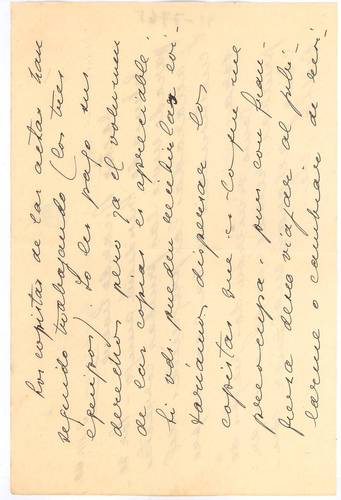 Los copistas de las actas han
seguido trabajando (los tres
equipos). Yo les pago sus
derechos, pero ya el volumen
de las copias es apreciable.
Si vds. pueden recibirlas evi-
taríamos dispersar los
copistas que es lo que me
preocupa, pues con fran-
queza deseo viajar al
larme o cambiar de